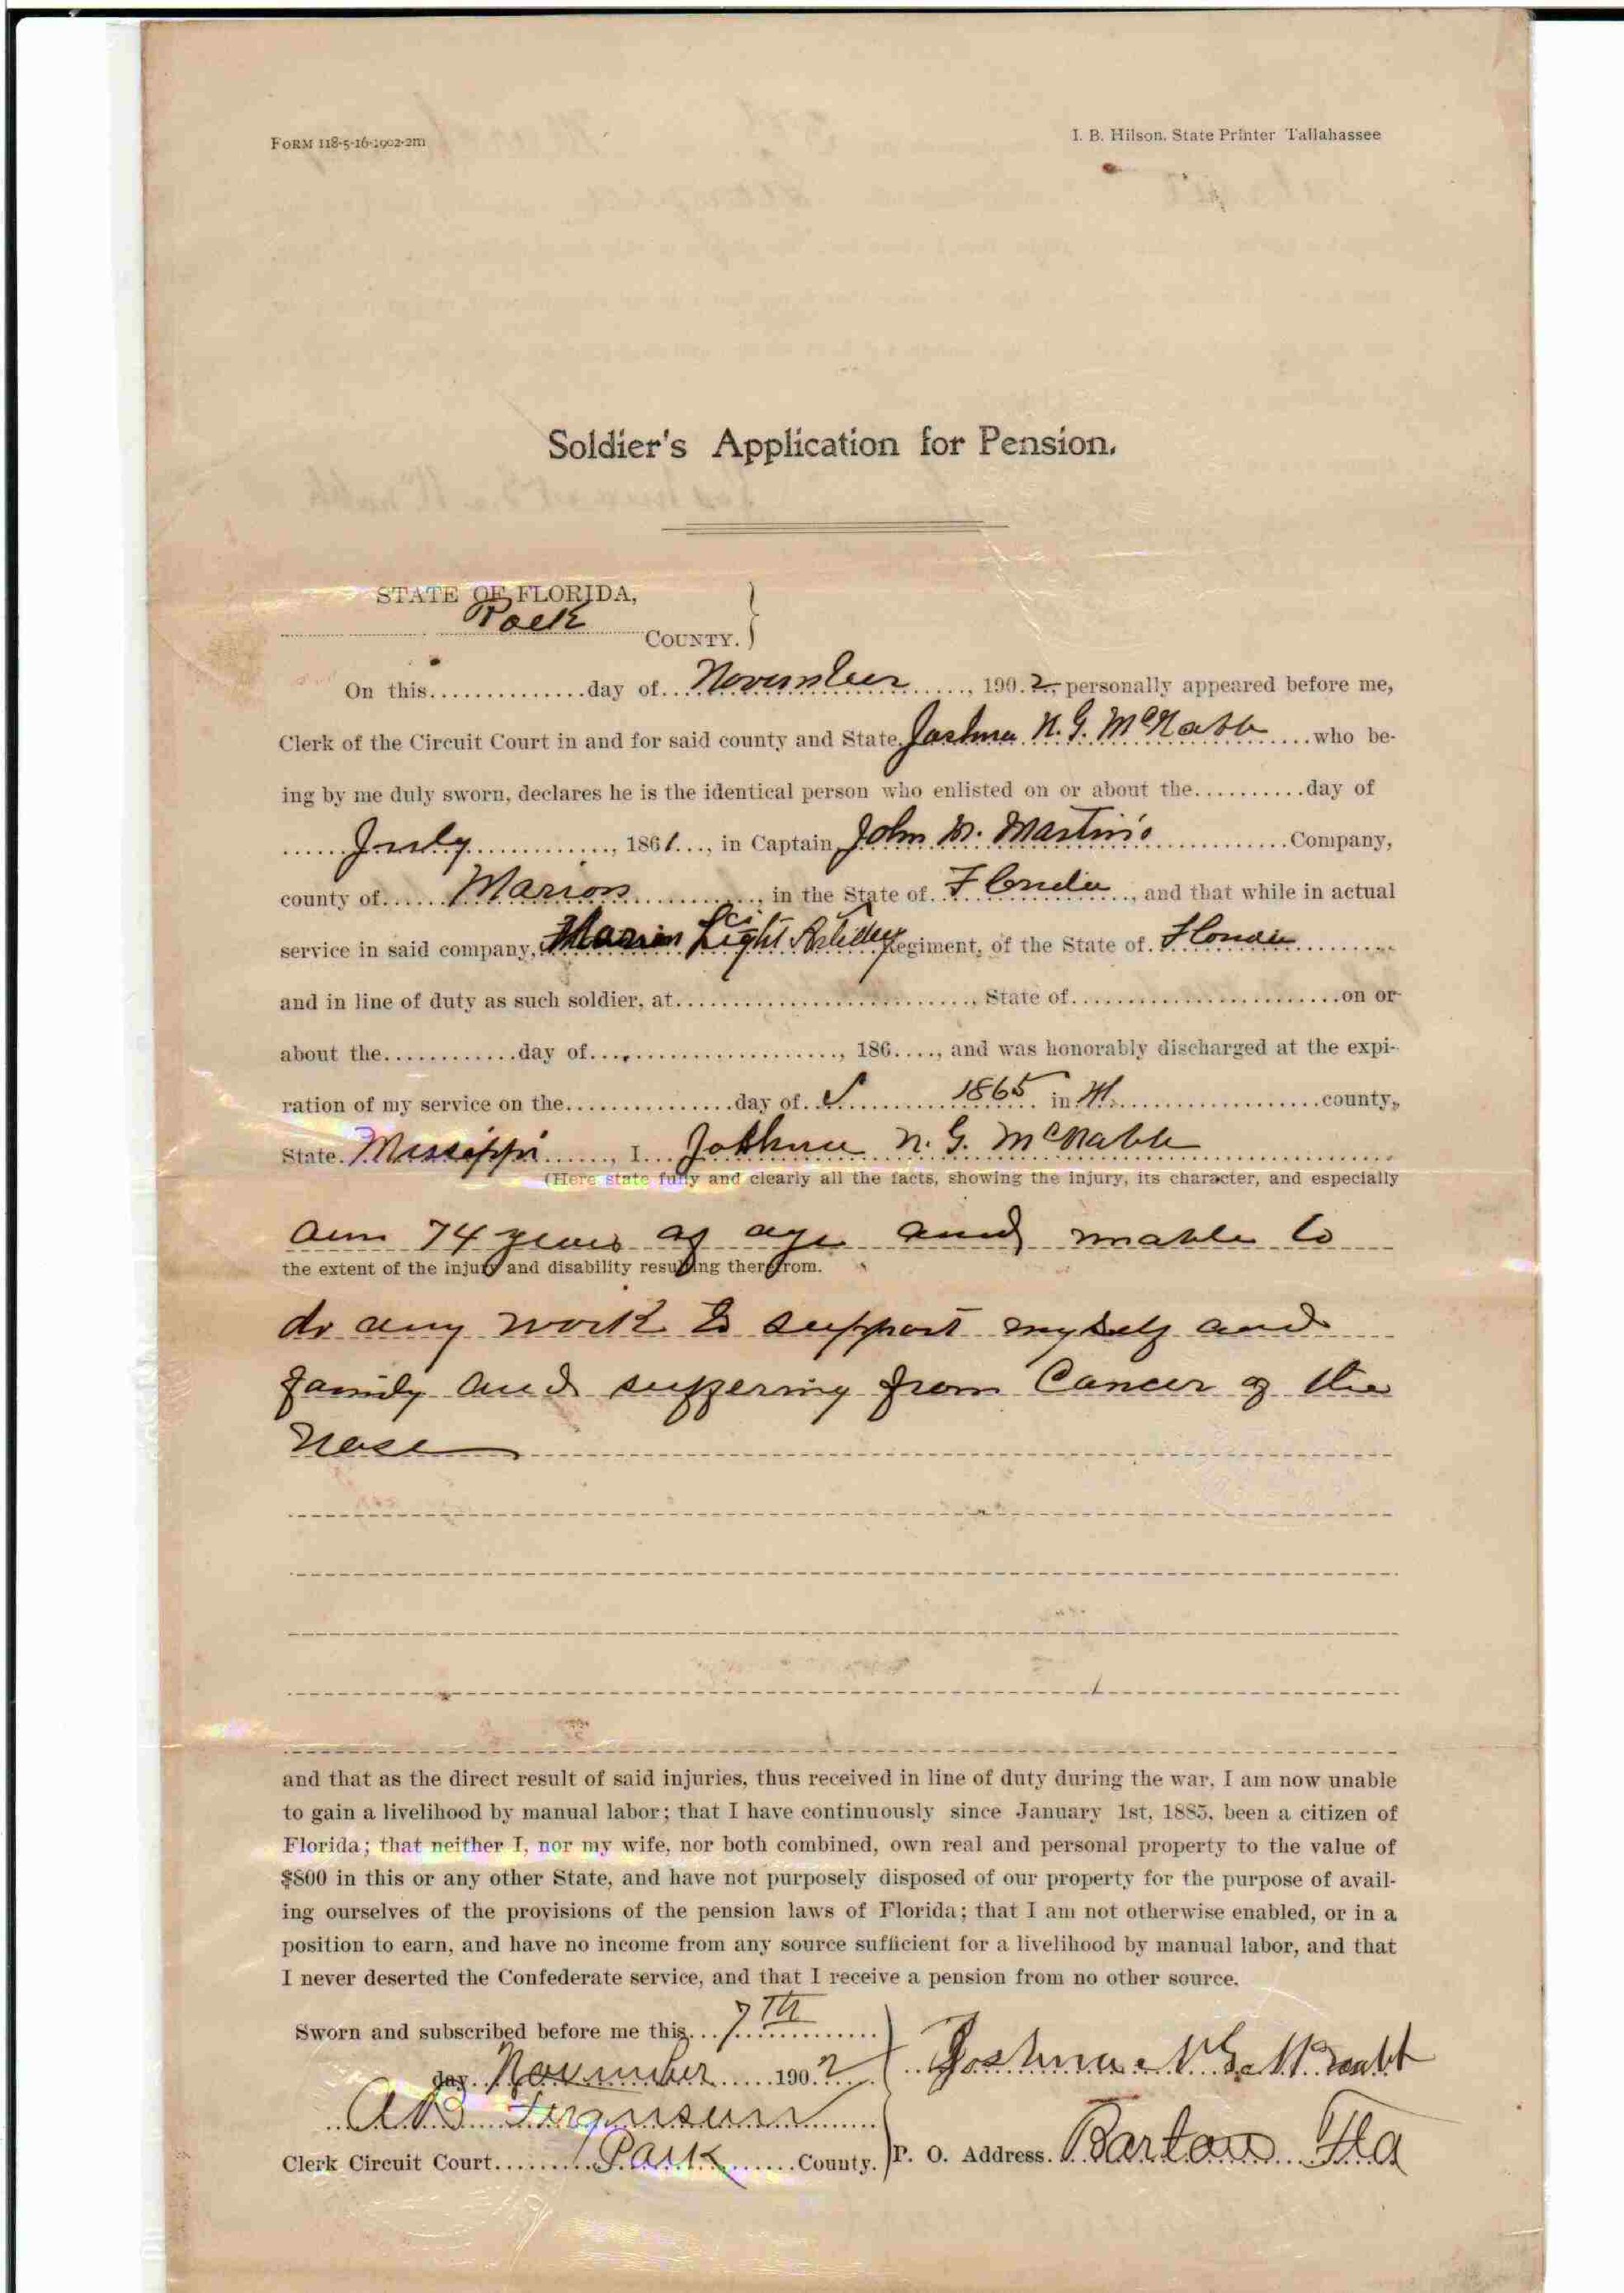 FORM 118-5-16-1902-2m
I. B. Hilson. State Printer Tallahassee
Soldier's Application for Pension.
STATE OF FLORIDA,
Polk COUNTY. }
On this..............day of...November......, 190.2., personally appeared before me,
Clerk of the Circuit Court in and for said county and State.Joshua N. G. McNabb....who be-
ing by me duly sworn, declares he is the identical person who enlisted on or about the..........day of
......July............., 1861..., in Captain John M. Martin's............Company,
county of......Marion............, in the State of..Florida.., and that while in actual
service in said company, Marion Light Artillery Regiment, of the State of.Florida.........
and in line of duty as such soldier, at..........................., State of........................on or
about the.............day of........................, 186....., and was honorably discharged at the expi-
ration of my service on the................day of........1865....in...................county,
State.Missippi......, I...Joshua N. G. McNabb...................
(Here state fully and clearly all the facts, showing the injury, its character, and especially
am 74 years of age and unable to
the extent of the injury and disability resulting therefrom.
do any work to support myself and
family and suffering from Cancer of the
Nose
and that as the direct result of said injuries, thus received in line of duty during the war, I am now unable
to gain a livelihood by manual labor; that I have continuously since January 1st, 1885, been a citizen of
Florida; that neither I, nor my wife, nor both combined, own real and personal property to the value of
$800 in this or any other State, and have not purposely disposed of our property for the purpose of avail-
ing ourselves of the provisions of the pension laws of Florida; that I am not otherwise enabled, or in a
position to earn, and have no income from any source sufficient for a livelihood by manual labor, and that
I never deserted the Confederate service, and that I receive a pension from no other source.
Sworn and subscribed before me this...7th...........
day..November......190.2 Joshua N. G. McNabb
A B Ferguson
Clerk Circuit Court.........Polk.......County. P. O. Address.Bartow Fla